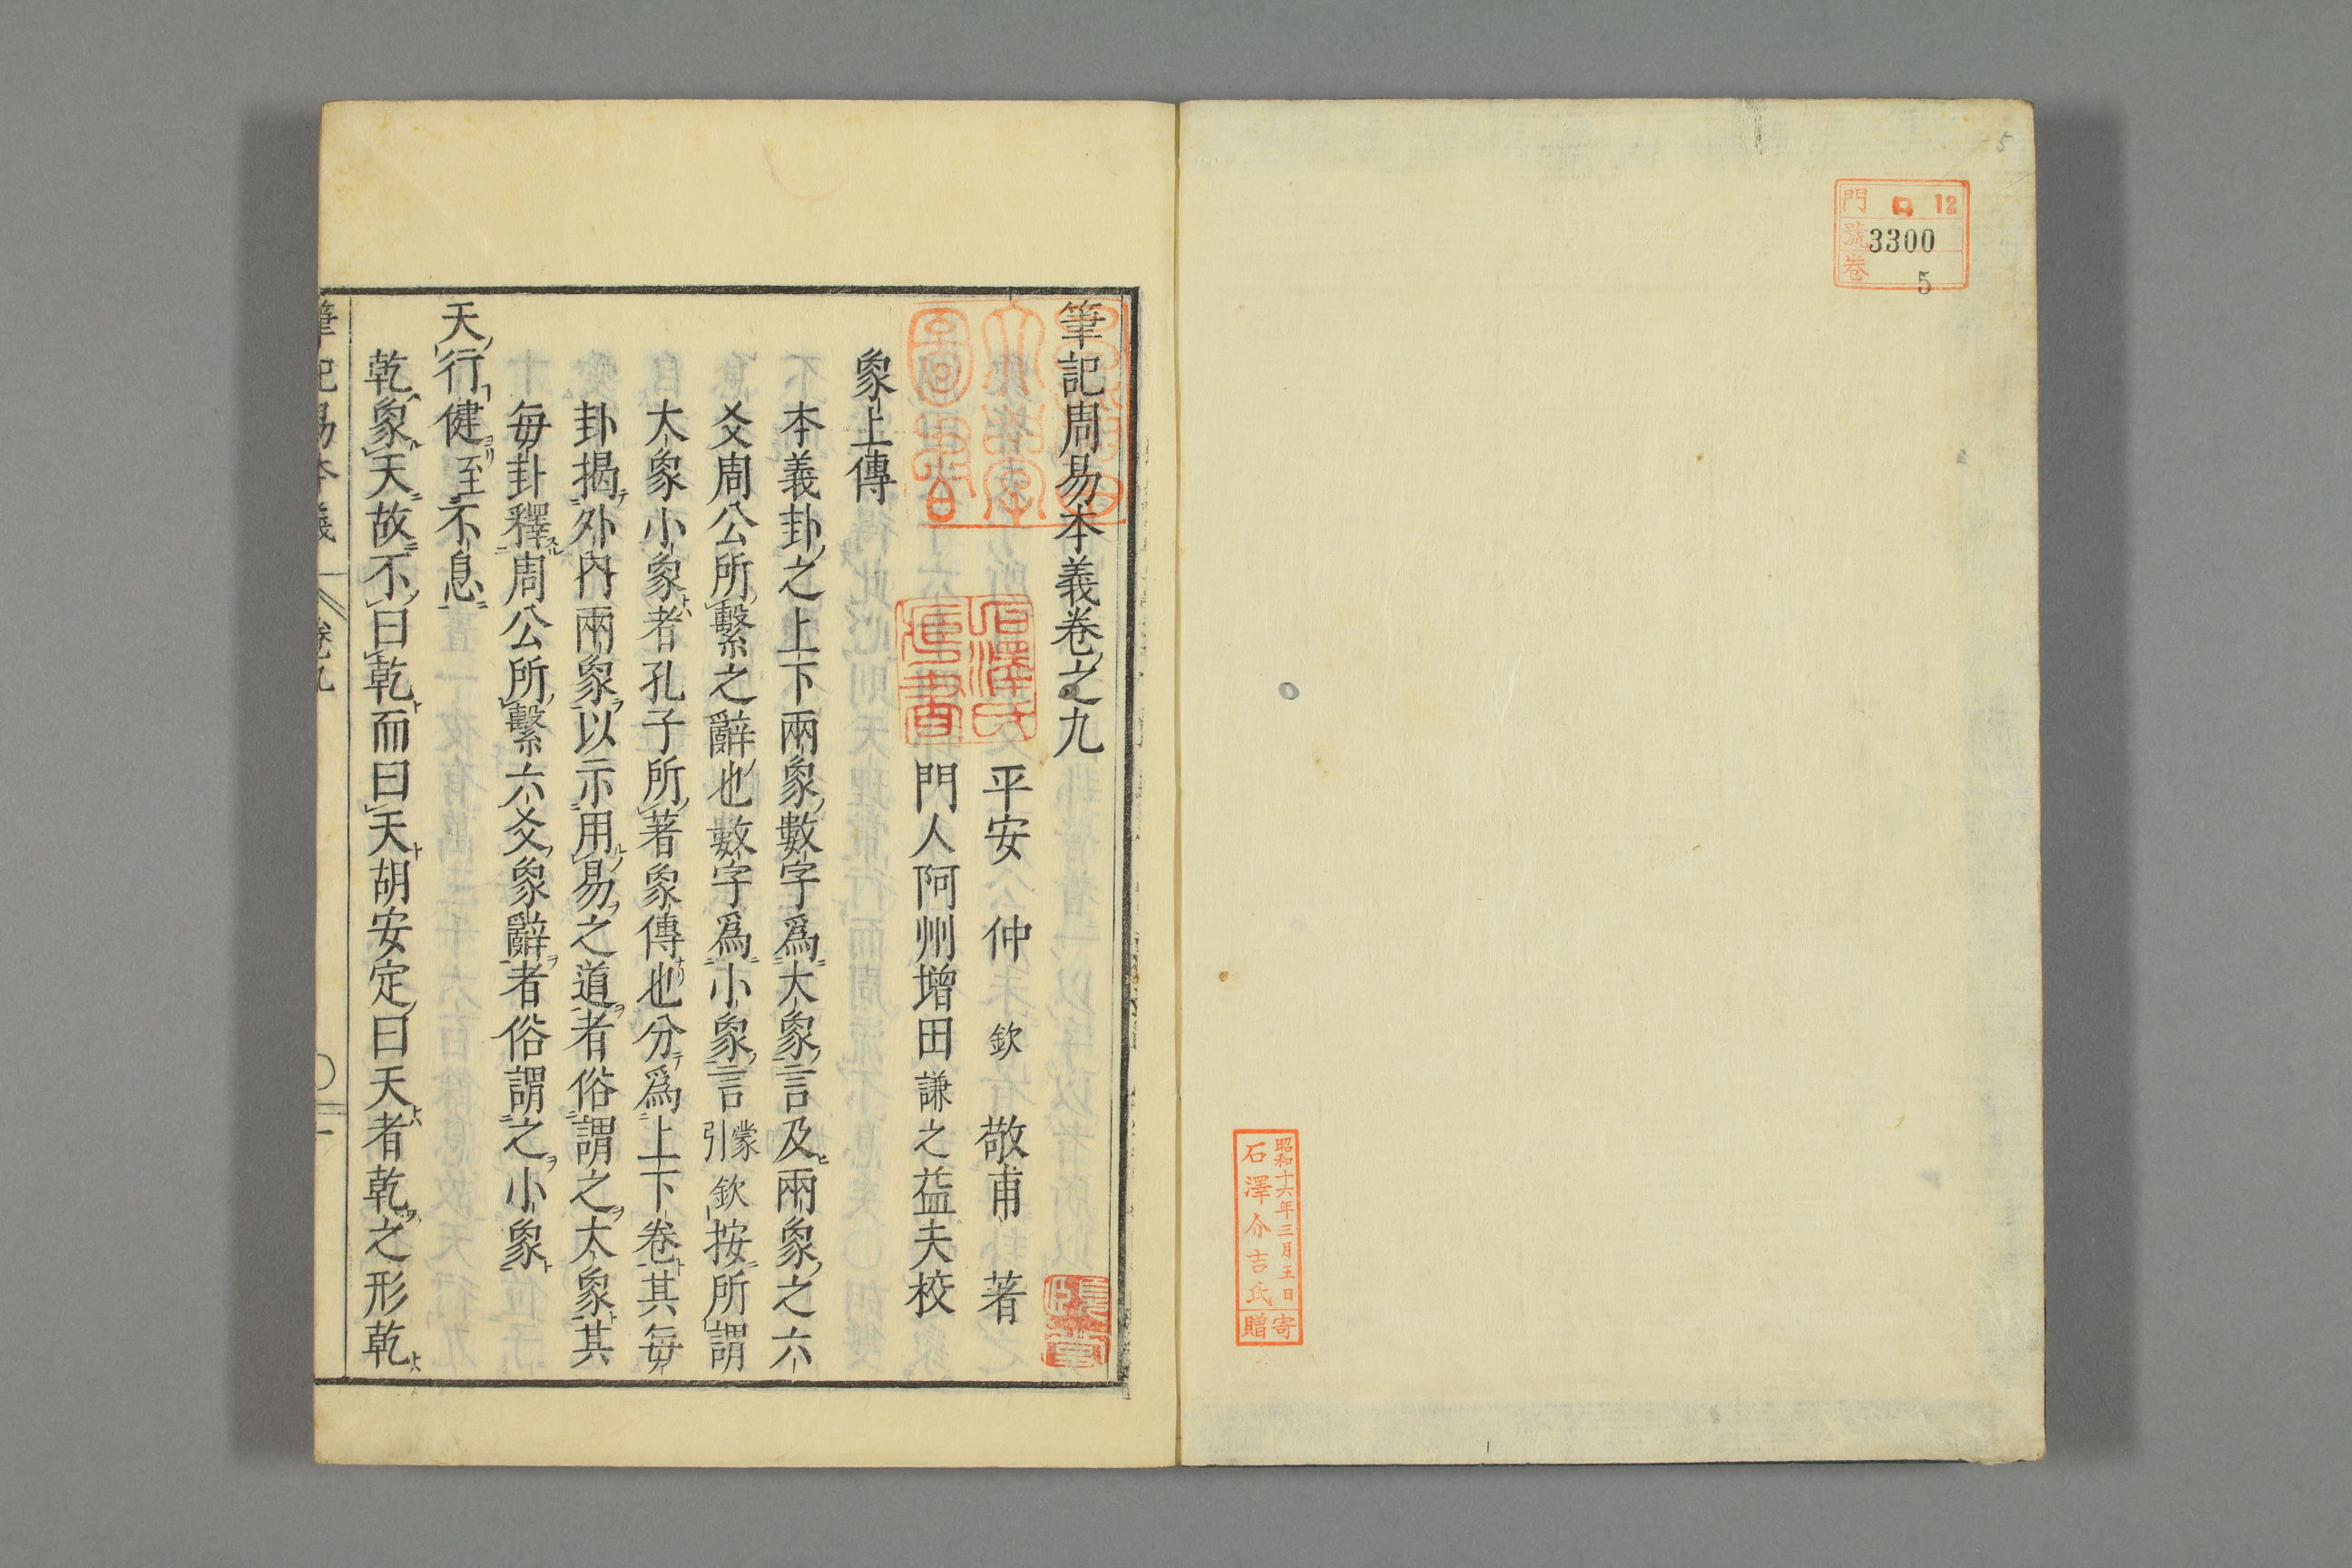 5
門 ロ 12
號 3300
卷 5
昭和十六年三月五日
石澤介吉氏
寄贈
筆記周易本義卷之九
平安 仲 欽 敬甫 著
門人阿州增田謙之益夫校
象上傳
本義卦之上下兩象數字爲大象言及兩象之六
爻周公所繫之辭也數字爲小象言蒙引欽按所謂
大象小象者孔子所著象傳也分爲上下卷其每
卦揭外內兩象以示用易之道者俗謂之大象其
每卦釋周公所繫六爻象辭者俗謂之小象
天行健至不息
乾象天故不曰乾而曰天胡安定曰天者乾之形乾
筆記易本義 卷九 一